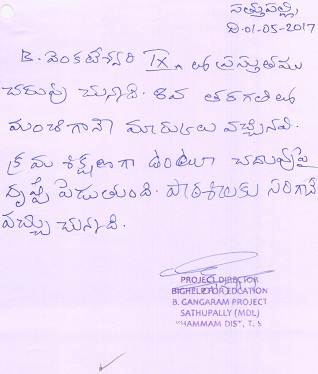 సత్తుపల్లి,
ది.01-05-2017
B. వెంకటేశ్వరి IX లో ప్రస్తుతము
చదువు చున్నది. 8వ తరగతిలో
మంచిగానే మార్కులు వచ్చినవి.
క్రమశిక్షణగా ఉంటూ చదువుపై
దృష్టి పెడుతుంది. పాఠశాలకు సరిగానే
వచ్చు చున్నది.
PROJECT DIRECTOR
BIGHELP FOR EDCATION
B. GANGARAM PROJECT
SATHUPALLY (MDL)
KHAMMAM DIST, T. S